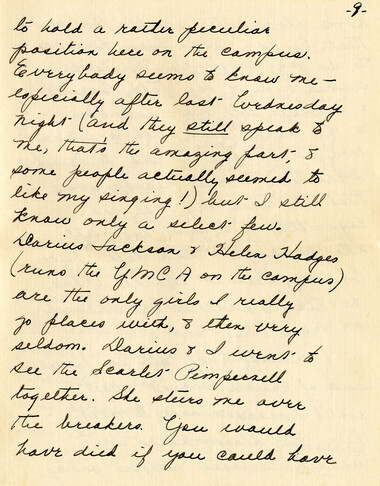 -9-
to hold a rather peculiar
position here on the campus.
Everybody seems to know me -
especially after last Wednesday
night (and they still speak to
me, that's the amazing part, &
some people actually seemed to
like my singing!) but I still
know only a select few.
Darius Jackson & Helen Hodges
(runs the YMCA on the campus)
are the only girls I really
go places with, & then very
seldom. Darius & I went to
see the Scarlet Pimpernell
together. She steers me over
the breakers. You would
have died if you could have